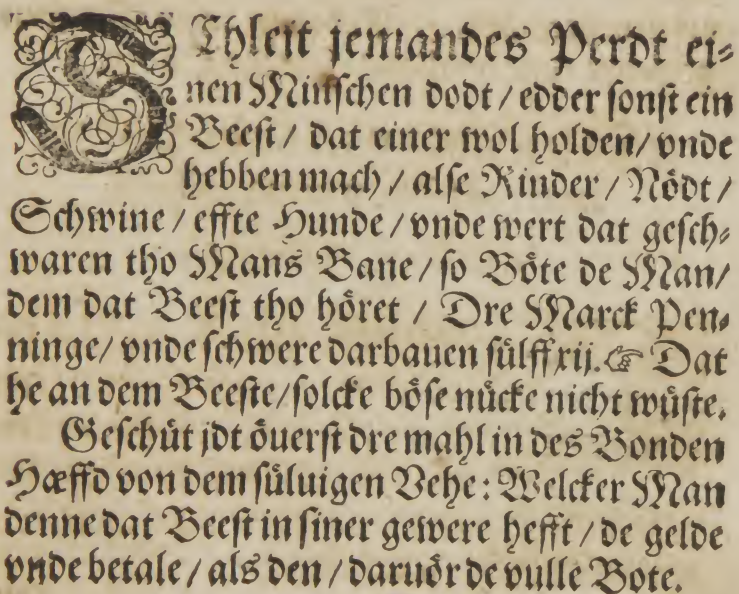 SChleit jemandes Perdt ei⸗
nen Minſchen dodt / edder ſonſt ein
Beeſt / dat einer wol holden / vnde
hebben mach / alſe Rinder / Nödt /
Schwine / effte Hunde / vnde wert dat geſch⸗
waren tho Mans Bane / ſo Böte de Man /
dem dat Beeſt tho höret / Dre Marck Pen⸗
ninge / vnde ſchwere darbauen ſülffxij. ☞ Dat
he an dem Beeſte / ſolcke böſe nücke nicht wüſte.
Geſchüt jdt öuerſt dre mahl in des Bonden
Hæffd von dem ſüluigen Vehe: Welcker Man
denne dat Beeſt in ſiner gewere hefft / de gelde
vnde betale / als den / daruör de vulle Bote.